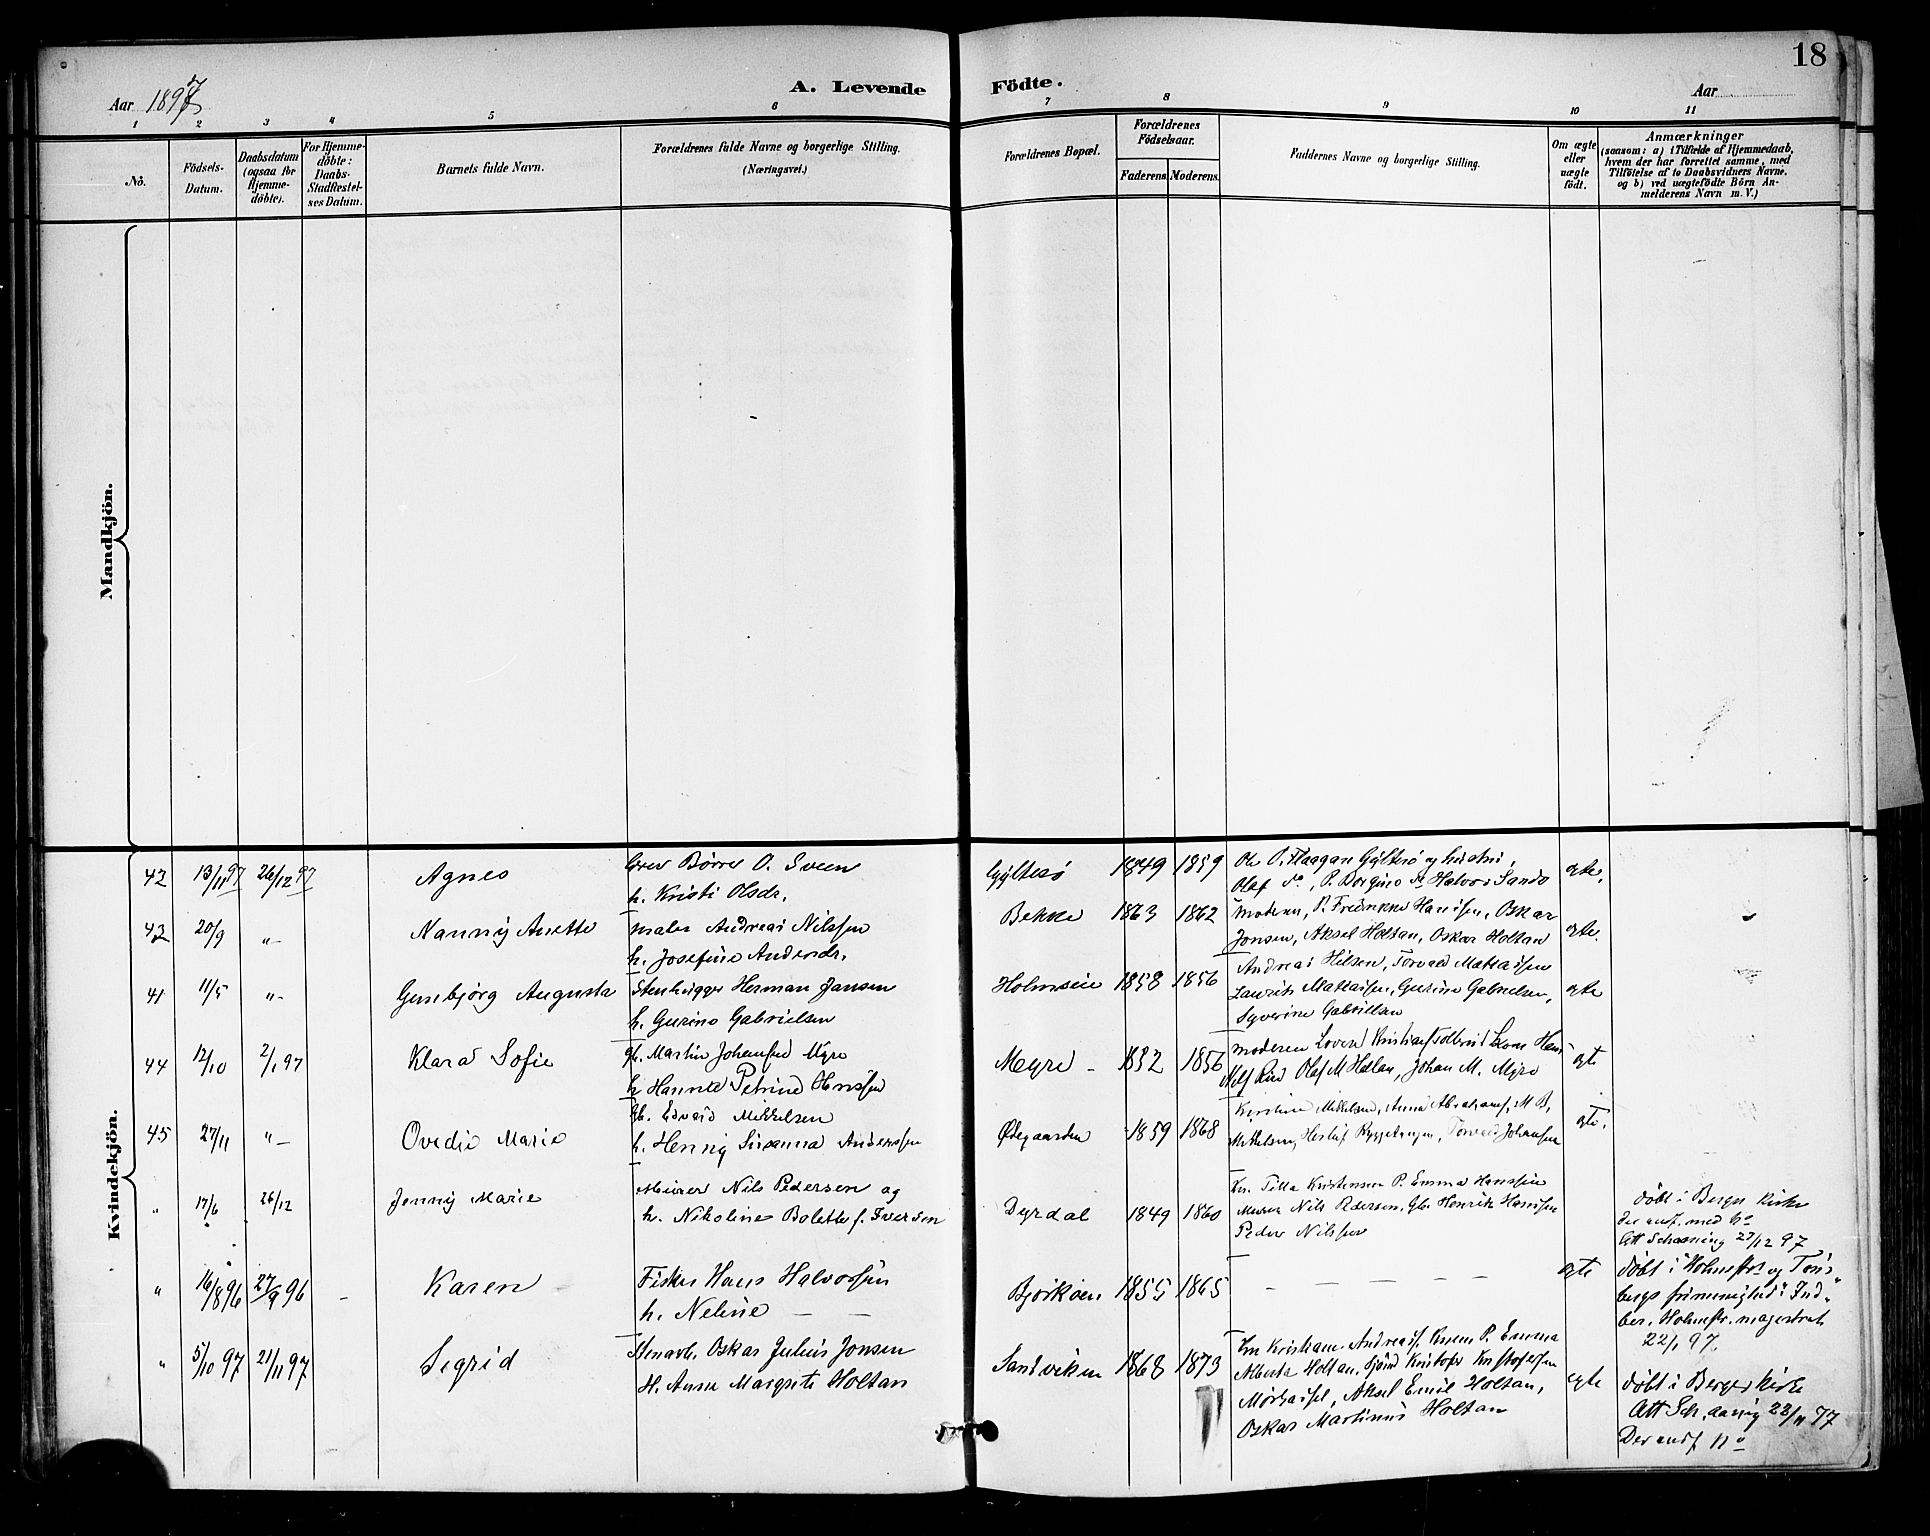 18
Aar 1897
A. Levende Födte.
Aar
1 2 3 4 5 6 7 8 9 10 11
No.
Födsels-
Datum.
Daabsdatum
(ogsaa for
Hjemme-
döbte).
For Hjemme-
döbte:
Daabs-
Stadfæstel-
ses Datum.
Barnets fulde Navn.
Forældrenes fulde Navne og borgerlige Stilling.
(Næringsvei.)
Forældrenes Bopæl.
Forældrenes
Födselsaar.
Faderens. Moderens.
Faddernes Navne og borgerlige Stilling.
Om ægte
eller
uægte
födt.
Anmærkninger
(saasom: a) i Tilfælde af Hjemmedaab,
hvem der har forrettet samme, med
Tilföielse af to Daabsvidners Navne,
og b) ved uægtefödte Börn An-
melderens Navn m. V.)
Mandkjön.
Kvindekjön.
42 13/11 97 26/12 97 Agnes
Børre O. Sveen
h. Kristi Olsdr.
Gylterö 1849 1859
Ole O. Haagan Gylterö og hustru,
Olaf do, P. Borgine do Halvor Sando
egte.
43 20/9 "- Nanny Anette
maler Andreas Nilssen
h. Josefine Andersdr.
Bekke 1863 1862
Moderen, P. Fredrikke Hansen, Oskar
Jonsen, Aksel Holtan, Oskar Holtan
egte.
41 11/5 "- Gunbjörg Augusta
Stenhugger Herman Jansen
h. Gurine Gabrielsen
1858 1856
Andreas Nilsen, Torvald Mattisen
Laurits Mattisen, Gurine Gabrielsen,
Syverine Gabrielsen
egte
44 12/10 2/1 97 Klara Sofie
gb. Martin Johansen Myre
h Hanna Petrine Hanssen
Meyre - 1832 1856
Moderen
Olaf M Hollan, Johan M. Myre
egte
45 27/11 "- Ovedie Marie
gb. Edvard Mikkelsen
h. Henny Susanna Anderssen
Ødegaarden 1859 1868
Kirstine Mikkelsen, Anna Abrahams, M B,
Mikkelsen, Torvald Johansen
egte.
" 17/6 26/12 Jenny Marie
Murer Nils Pedersen og
h. Nikoline Bolette f. Iversen
Dyrdal 1849 1860
Kr. Tilla Kristensen P. Emma Hanssen
Murer Nils Pedersen, Gb. Henrik Hanssen
Peder Nilssen
döbt i Berger Kirke
der anf. med No
Att Schaaning 27/12 97
" 16/8 96 27/9 96 - Karen
Fisker Hans Halvorsen
h. Neline — —
Bjerkøen 1855 1865
— — — — —
egte
döbt i Holmestr. og Töns-
bergs frimenighed i Ind-
ber. Holmestr. magistrat
22/1 97.
" 5/10 97 21/11 97 Sigrid
Oskar Julius Jonsen
H. Anna Margrete Holtan
Sandviken 1868 1873
Kristiane Andreass. P. Emma
Alberta Holtan. Kristofer Kristofersen
Aksel Emil Holtan,
Oskar Martinus Holtan
egte
döbt i Berger Kirke
Att Schaaning 22/11 97
Der anf No